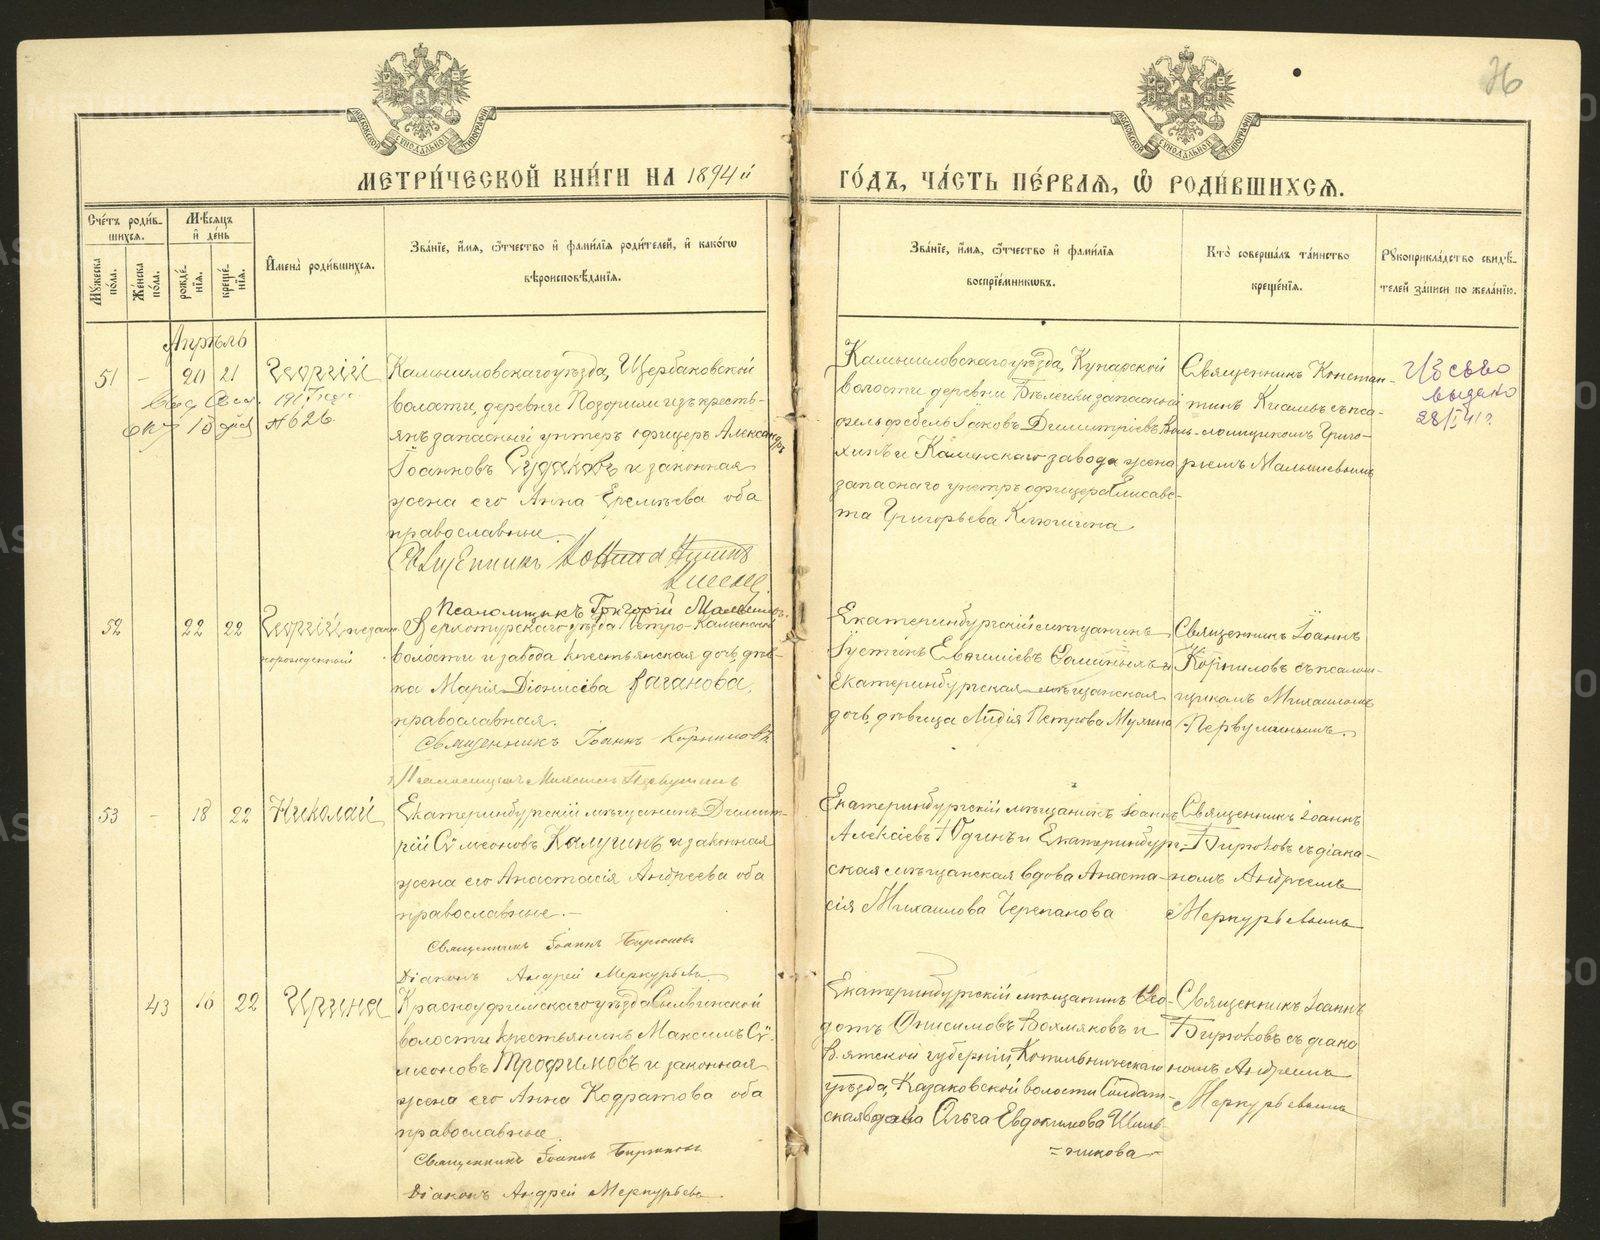 МЕТРИ́ЧЕСКОЙ КНИ́ГИ НА 1894й
ГО́ДЪ, ЧА́СТЬ ПЕ́РВАѦ, Ѡ РОДИ́ВШИХСѦ.
Сче́тъ роди́в-
шихсѧ.
Мꙋжеска по́ла.
Женска по́ла.
Мѣ́сѧцъ и де́нь
рожде́-
нїѧ.
креще́-
нїѧ.
Имена̀ роди́вшихсѧ.
Зва́нїе, и́мѧ, ѻ́тчество и҆ фами́лїѧ роди́телей, и҆ како́гѡ
вѣроисповѣ́данїѧ.
Зва́нїе, и́мѧ, ѻ́тчество и҆ фами́лїѧ
воспрїе́мникѡвъ.
Кто̀ соверша́лъ та́инство
креще́нїѧ.
Рꙋкоприкла́дство свидѣ́-
телей за́писи по жела́нїю.
Апрѣль
51 - 20 21 Георгій
№ 626
Камышловскаго уѣзда, Щербаковской
волости, деревни Позарихи изъ кресть-
янъ запасный унтеръ офицеръ Александръ
Іоанновъ Судаковъ и законная
жена его Анна Еремѣева оба
православные
Священникъ
Псаломщикъ Григорій Малышевъ
Камышловскаго уѣзда, Кунарской
волости деревни запасной
фельдфебель Іаковъ Димитріевъ
и Каминскаго завода жена
запаснаго унтеръ офицера Елисаве-
та Григорьева
Священникъ Констан-
тинъ съ пса-
ломщикомъ Григо-
ріемъ Малышевымъ
выдано
28/I 41 г
52 22 22 Георгій незакон
норожденный
Верхотурскаго уѣзда Петро-Каменской
волости и завода крестьянская дочь, дѣв-
ка Марія Діонисіева Ваганова,
православная.
Священникъ Іоаннъ Корниловъ
Псаломщикъ Михаилъ Первушинъ
Екатеринбургскій мѣщанинъ
Іустинъ Евѳиміевъ и
Екатеринбургская мѣщанская
дочь, дѣвица Лидія Петрова Мухина
Священникъ Іоаннъ
Корниловъ съ псалом-
щикомъ Михаиломъ
Первушинымъ.
53 - 18 22 Николай
Екатеринбургскій мѣщанинъ Димит-
рій Сѵмеоновъ Калугинъ и законная
жена его Анастасія Андреева оба
православные.-
Священникъ Іоаннъ Бирюковъ
Діаконъ Андрей Меркурьевъ
Екатеринбургскій мѣщанинъ Іоаннъ
Алексіевъ Юдинъ и Екатеринбург-
ская мѣщанская вдова Анаста-
сія Михаилова Черепанова
Священникъ Іоаннъ
Бирюковъ съ діако-
номъ Андреемъ
Меркурьевымъ
43 16 22 Ирина
Красноуфимскаго уѣзда Сылвинской
волости крестьянинъ Максимъ Сѵ-
меоновъ Трофимовъ и законная
жена его Анна Кодратова оба
православные.
Священникъ Іоаннъ Бирюковъ
Діаконъ Андрей Меркурьевъ
Екатеринбургскій мѣщанинъ Ѳео-
дотъ Онисимовъ Вохмяковъ и
Вятской губерніи, Котельническаго
уѣзда, Казаковской волости Солдат-
ская вдова Ольга Евдокимова Шиль-
никова
Священникъ Іоаннъ
Бирюковъ съ діако
номъ Андреемъ
Меркурьевымъ